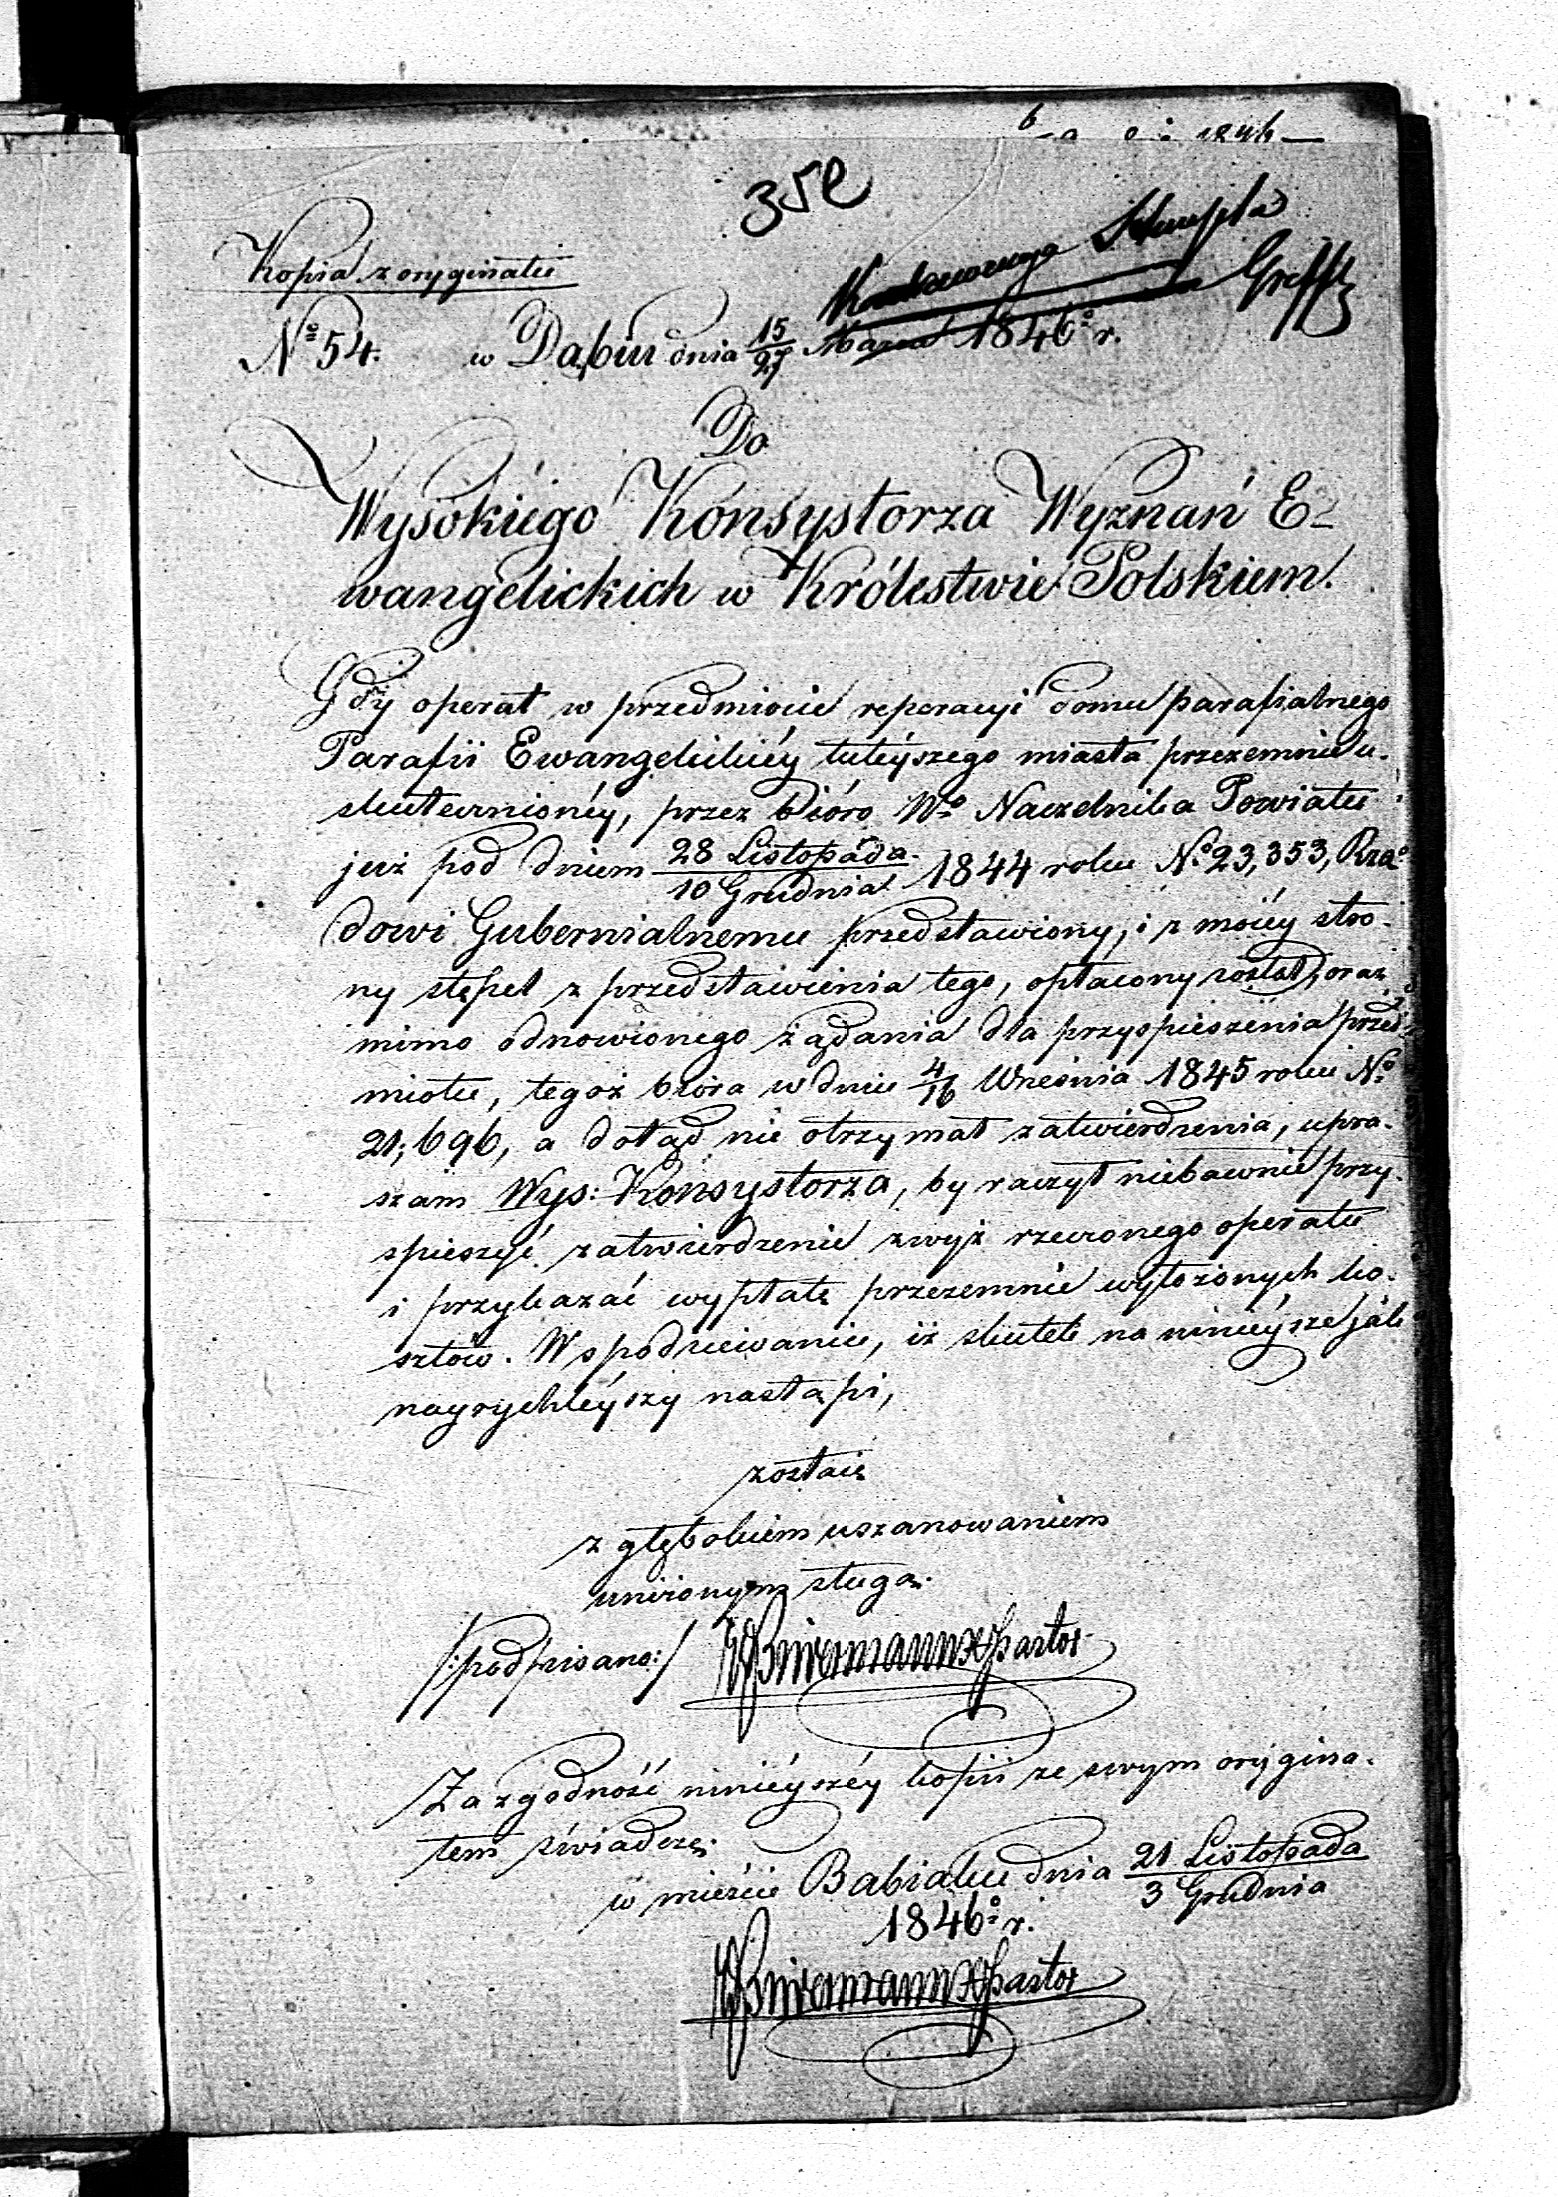 1846
352
Kopia z oryginału
Nº 54. w Dąbiu dnia 15/27 Marca 1846º r.
Do
Wysokiégo Konsystorza Wyznań E-
wangelickich w Królestwie Polskiem.
Gdy operat w przedmiocie reperacyi domu parafialnego
Parafii Ewangelickiéy tutéyszego miasta przezemnie u-
skutecznionéy, przez bióro Wº Naczelnika Powiatu
już pod dniem 28 Listopada/10 Grudnia 1844 roku Nº 23,353, Rzą-
dowi Gubernialnemu przedstawiony, i z moiéy stro-
ny stępel z przedstawienia tego, opłacony został, oraz
mimo odnowionego żądania dla przyspieszenia przed-
miotu, tegoż bióra w dniu 4/16 Września 1845 roku Nº
21,696, a dotąd nie otrzymał zatwierdzenia, upra-
szam Wys: Konsystorza, by raczył niebawnie przy-
spieszyć zatwierdzenie zwyż rzeczonego operatu
i przykazać wypłatę przezemnie wyłożonych ko-
sztów. W spodziewaniu, iż skutek na ninieysze jak
nayrychléyszy nastąpi,
zostaię
z głębokiem uszanowaniem
uniżonym sługą.
/:podpisano:/ Biermann Pastor
Za zgodność niniéyszéy kopii ze swym orygina-
łem świadczę.
w mieście Babiaku dnia 21 Listopada/3 Grudnia
1846º r.
Biermann Pastor